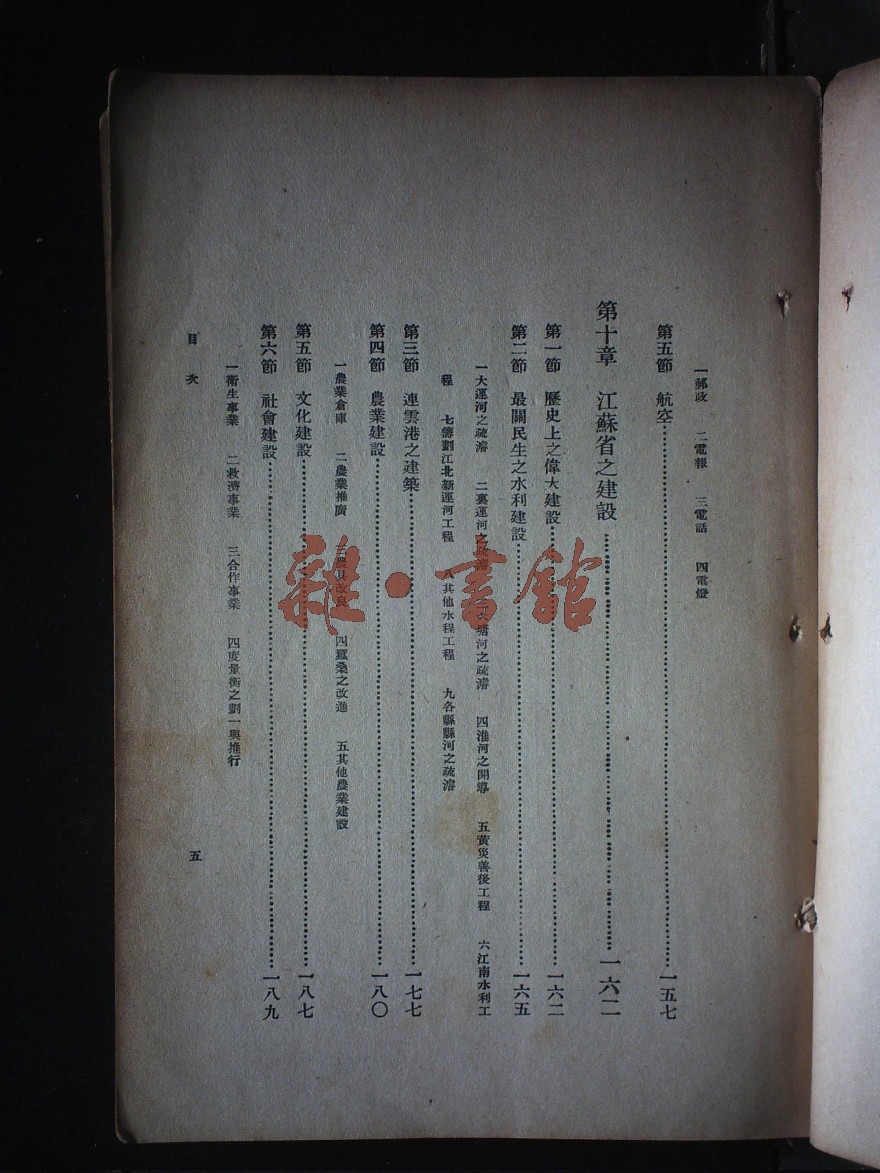 一郵政 二電報 三電話 四電燈
第五節 航空……一五七
第十章 江蘇省之建設……一六二
第一節 歷史上之偉大建設……一六二
第二節 最關民生之水利建設……一六五
一大運河之疏濬 二裏運河之疏濬 六塘河之疏濬 四淮河之開導 五黃災善後工程 六江南水利工
程 七籌劃江北新運河工程 八其他水程工程 九各縣縣河之疏濬
第三節 連雲港之建築……一七七
第四節 農業建設……一八〇
一農業倉庫 二農業推廣 三農具改良 四蠶桑之改進 五其他農業建設
第五節 文化建設……一八七
第六節 社會建設……一八九
一衛生事業 二救濟事業 三合作事業 四度量衡之劃一與推行
目次 五
雜·書館